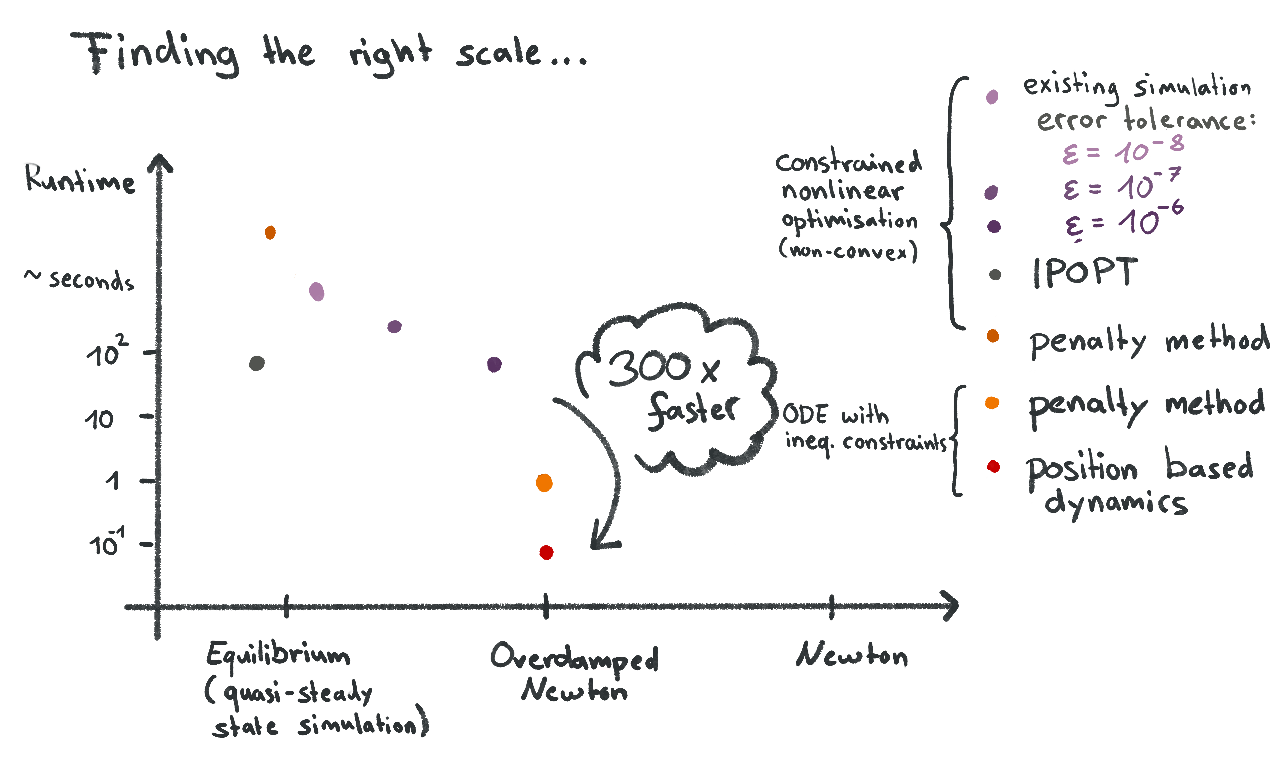 Finding the right scale...
Runtime
~ seconds
10²
10
1
10⁻¹
Equilibrium
(quasi-steady
state simulation)
Overdamped
Newton
Newton
300 x
faster
constrained
nonlinear
optimisation
(non-convex)
existing simulation
error tolerance:
ε = 10⁻⁸
ε = 10⁻⁷
ε = 10⁻⁶
IPOPT
penalty method
ODE with
ineq. constraints
penalty method
position based
dynamics